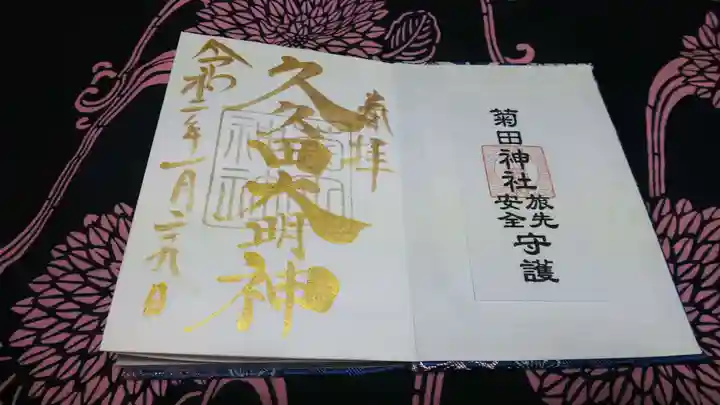 奉拝
久久田大明神
令和二年一月二十九日
菊田神社
旅先
安全
守護